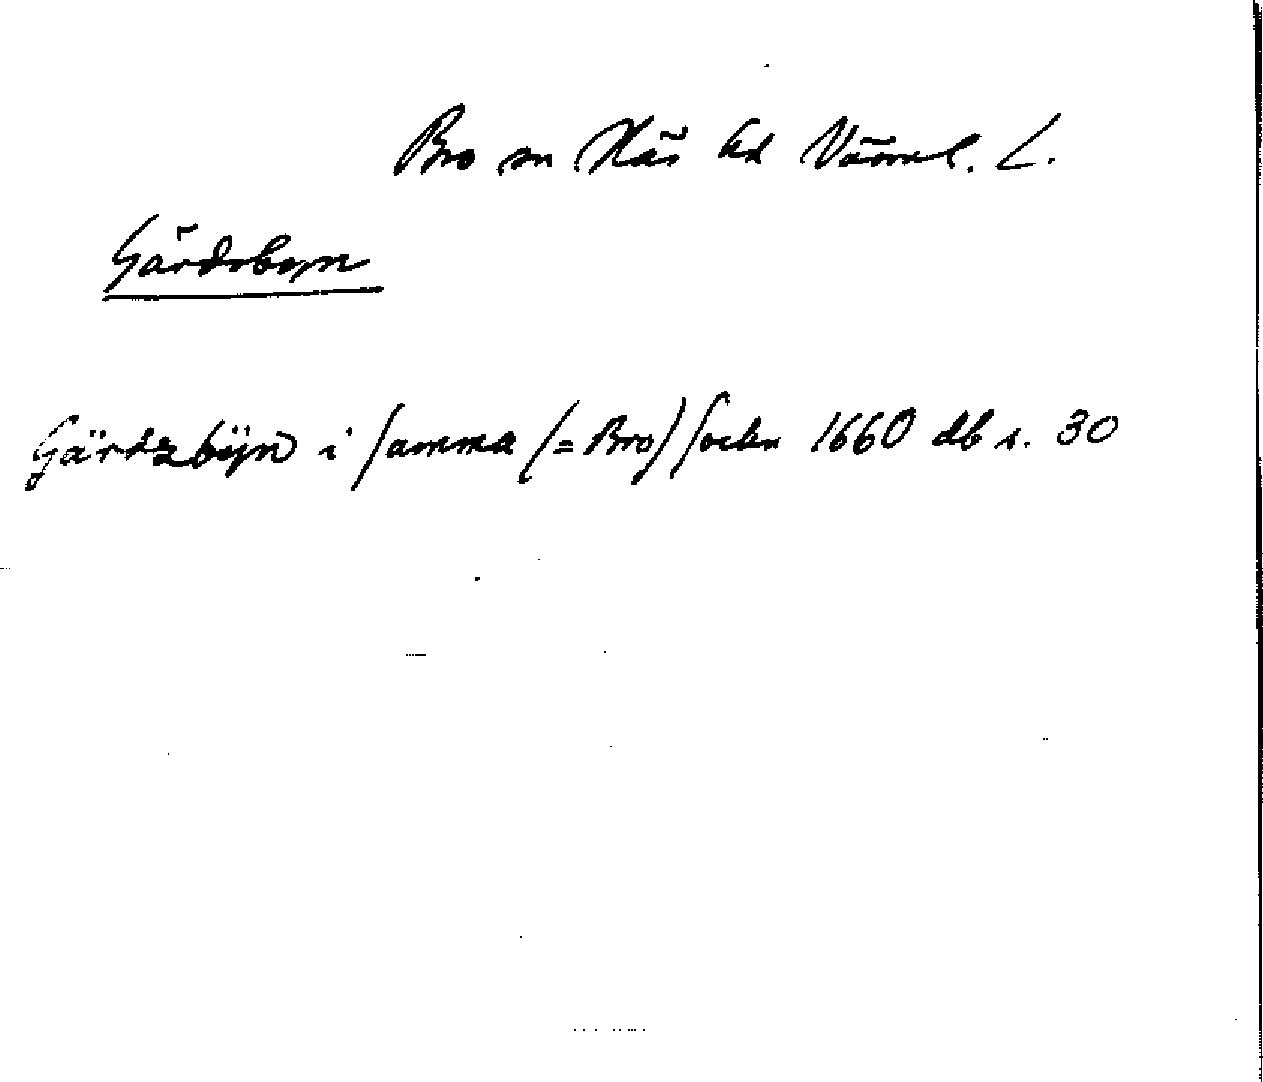 Bro sn Näs hd Värml. L.
Gärdsbyn
Gärdzbÿn i samma (= Bro) sockn 1660 db s. 30